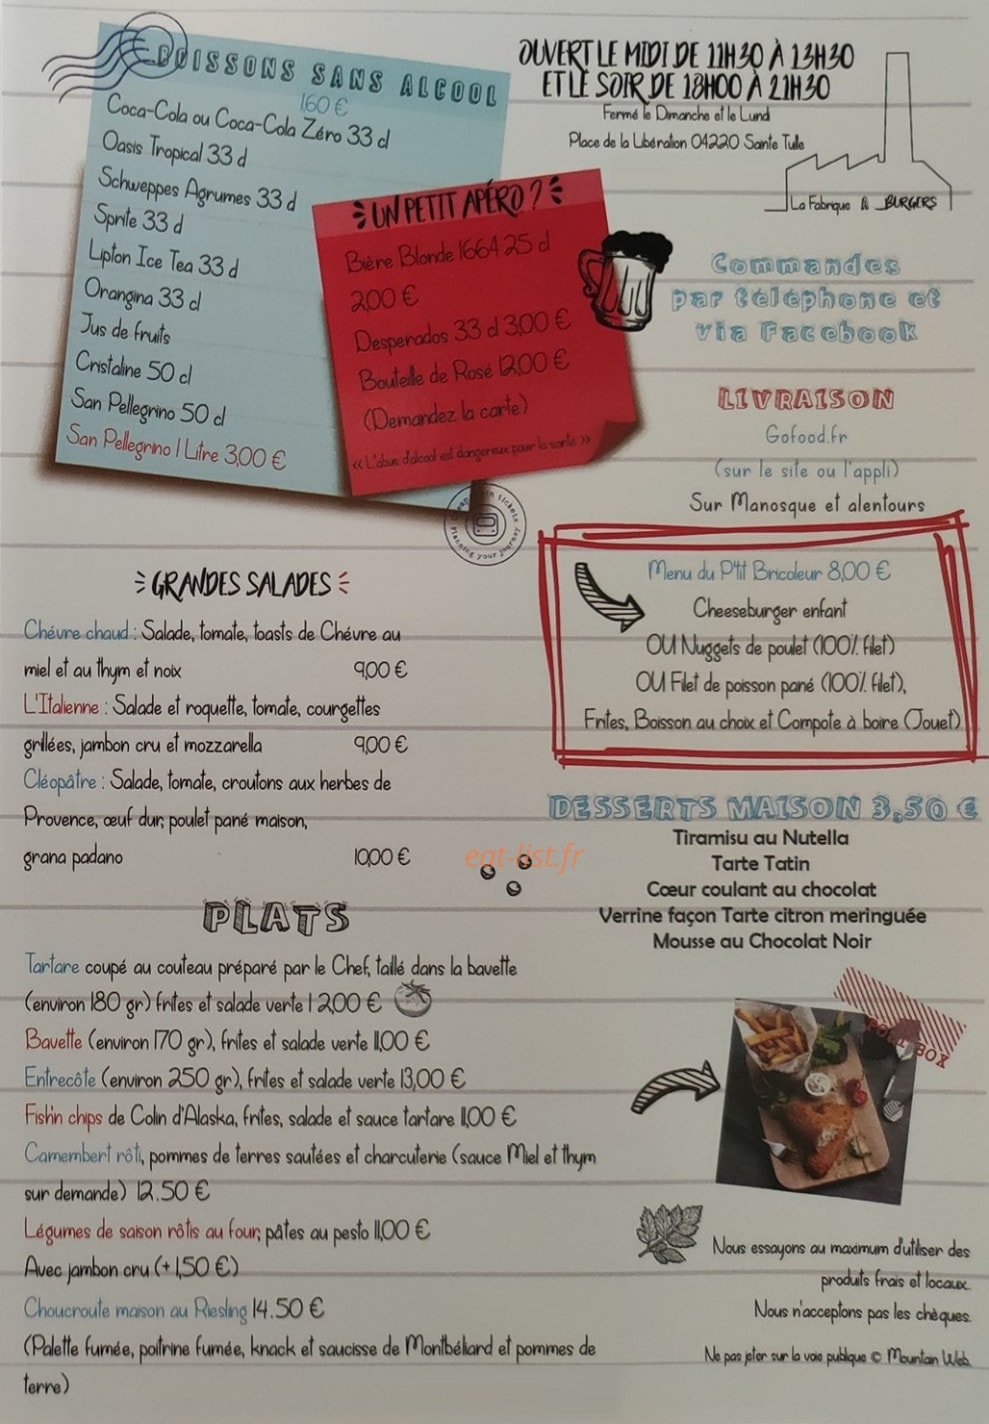 BOISSONS SANS ALCOOL
1,60 €
Coca-Cola ou Coca-Cola Zéro 33 cl
Oasis Tropical 33 cl
Schweppes Agrumes 33 cl
Sprite 33 cl
Lipton Ice Tea 33 cl
Orangina 33 cl
Jus de fruits
Cristaline 50 cl
San Pellegrino 50 cl
San Pellegrino 1 Litre 3,00 €
UN PETIT APÉRO ?
Bière Blonde 1664 25 cl
2,00 €
Desperados 33 cl 3,00 €
Bouteille de Rosé 12,00 €
(Demandez la carte)
« L'abus d'alcool est dangereux pour la santé »
OUVERT LE MIDI DE 11H30 À 13H30
ET LE SOIR DE 18H00 À 21H30
Fermé le Dimanche et le Lundi
Place de la Libération 04220 Sainte Tulle
La Fabrique À BURGERS
Commandes
par téléphone et
via Facebook
LIVRAISON
Gofood.fr
(sur le site ou l'appli)
Sur Manosque et alentours
Menu du P'tit Bricoleur 8,00 €
Cheeseburger enfant
OU Nuggets de poulet (100% filet)
OU Filet de poisson pané (100% filet),
Frites, Boisson au choix et Compote à boire (Jouet)
GRANDES SALADES
Chévre chaud : Salade, tomate, toasts de Chévre au
miel et au thym et noix 9,00 €
L'Italienne : Salade et roquette, tomate, courgettes
grillées, jambon cru et mozzarella 9,00 €
Cléopâtre : Salade, tomate, croutons aux herbes de
Provence, œuf dur, poulet pané maison,
grana padano 10,00 €
eat-list.fr
DESSERTS MAISON 3,50 €
Tiramisu au Nutella
Tarte Tatin
Cœur coulant au chocolat
Verrine façon Tarte citron meringuée
Mousse au Chocolat Noir
PLATS
Tartare coupé au couteau préparé par le Chef, taillé dans la bavette
(environ 180 gr) frites et salade verte 12,00 €
Bavette (environ 170 gr), frites et salade verte 11,00 €
Entrecôte (environ 250 gr), frites et salade verte 13,00 €
Fish'n chips de Colin d'Alaska, frites, salade et sauce tartare 11,00 €
Camembert rôti, pommes de terres sautées et charcuterie (sauce Miel et thym
sur demande) 12.50 €
Légumes de saison rôtis au four, pâtes au pesto 11,00 €
Avec jambon cru (+ 1,50 €)
Choucroute maison au Riesling 14.50 €
(Palette fumée, poitrine fumée, knack et saucisse de Montbéliard et pommes de
terre)
BOX
Nous essayons au maximum d'utiliser des
produits frais et locaux.
Nous n'acceptons pas les chèques.
Ne pas jeter sur la voie publique © Mountain Web